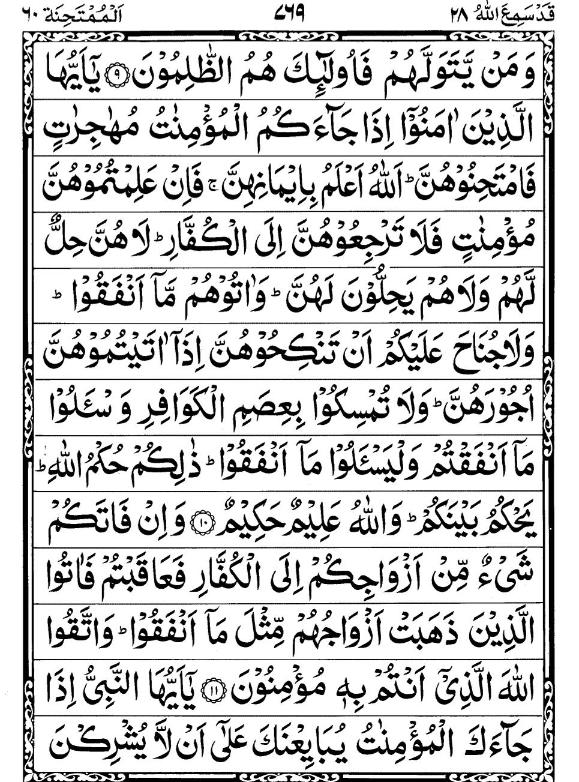 قَدْ سَمِعَ اللّٰهُ ٢٨ ٧٦٩ اَلْمُمْتَحِنَة ٦٠
وَمَنْ يَّتَوَلَّهُمْ فَاُولٰٓئِكَ هُمُ الظّٰلِمُوْنَ ۝٩ يٰٓاَيُّهَا
الَّذِيْنَ اٰمَنُوْٓا اِذَا جَآءَكُمُ الْمُؤْمِنٰتُ مُهٰجِرٰتٍ
فَامْتَحِنُوْهُنَّ ؕ اَللّٰهُ اَعْلَمُ بِاِيْمَانِهِنَّ ۚ فَاِنْ عَلِمْتُمُوْهُنَّ
مُؤْمِنٰتٍ فَلَا تَرْجِعُوْهُنَّ اِلَى الْكُفَّارِ ؕ لَا هُنَّ حِلٌّ
لَّهُمْ وَلَا هُمْ يَحِلُّوْنَ لَهُنَّ ؕ وَاٰتُوْهُمْ مَّآ اَنْفَقُوْا ؕ
وَلَا جُنَاحَ عَلَيْكُمْ اَنْ تَنْكِحُوْهُنَّ اِذَآ اٰتَيْتُمُوْهُنَّ
اُجُوْرَهُنَّ ؕ وَلَا تُمْسِكُوْا بِعِصَمِ الْكَوَافِرِ وَسْـَٔلُوْا
مَآ اَنْفَقْتُمْ وَلْيَسْـَٔلُوْا مَآ اَنْفَقُوْا ؕ ذٰلِكُمْ حُكْمُ اللّٰهِ ؕ
يَحْكُمُ بَيْنَكُمْ ؕ وَاللّٰهُ عَلِيْمٌ حَكِيْمٌ ۝١٠ وَاِنْ فَاتَكُمْ
شَيْءٌ مِّنْ اَزْوَاجِكُمْ اِلَى الْكُفَّارِ فَعَاقَبْتُمْ فَاٰتُوا
الَّذِيْنَ ذَهَبَتْ اَزْوَاجُهُمْ مِّثْلَ مَآ اَنْفَقُوْا ؕ وَاتَّقُوا
اللّٰهَ الَّذِيْٓ اَنْتُمْ بِهٖ مُؤْمِنُوْنَ ۝١١ يٰٓاَيُّهَا النَّبِيُّ اِذَا
جَآءَكَ الْمُؤْمِنٰتُ يُبَايِعْنَكَ عَلٰٓى اَنْ لَّا يُشْرِكْنَ